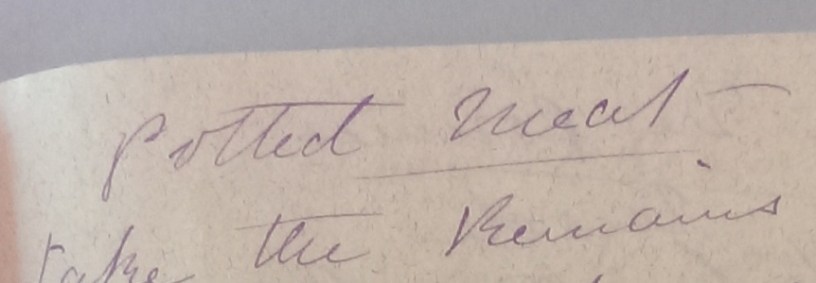 Potted Meat —
take the Remains